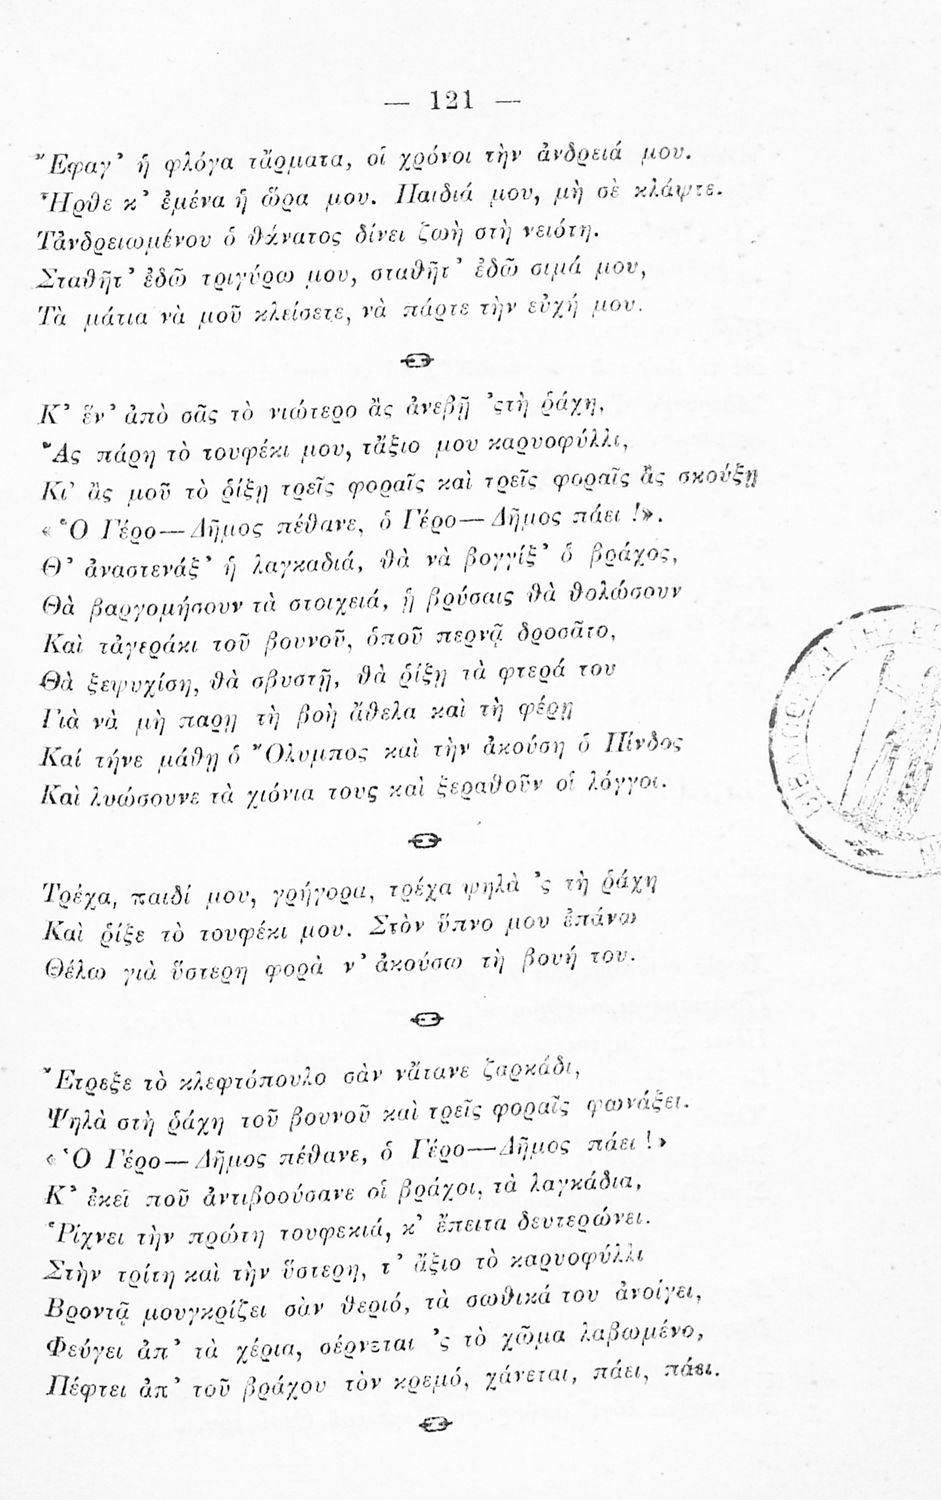 — 121 —
Ἔφαγ᾽ ἡ φλόγα τἄρματα, οἱ χρόνοι τὴν ἀνδρειά μου.
Ἦρθε κ᾽ ἐμένα ἡ ὥρα μου. Παιδιά μου, μὴ σὲ κλάψτε.
Τἀνδρειωμένου ὁ θάνατος δίνει ζωὴ στὴ νειότη.
Σταθῆτ᾽ ἐδῶ τριγύρω μου, σταθῆτ᾽ ἐδῶ σιμά μου,
Τὰ μάτια νὰ μοῦ κλείσετε, νὰ πάρτε τὴν εὐχή μου.
Κ᾽ ἕν᾽ ἀπὸ σᾶς τὸ νιώτερο ἂς ἀνεβῇ ᾽στὴ ῥάχη,
Ἂς πάρῃ τὸ τουφέκι μου, τἄξιο μου καρυοφύλλι,
Κι᾽ ἂς μοῦ τὸ ῥίξῃ τρεῖς φοραῖς καὶ τρεῖς φοραῖς ἂς σκούξῃ
«Ὁ Γέρο—Δῆμος πέθανε, ὁ Γέρο—Δῆμος πάει!».
Θ᾽ ἀναστενάξ᾽ ἡ λαγκαδιά, θὰ νὰ βογγίξ᾽ ὁ βράχος,
Θὰ βαργομήσουν τὰ στοιχειά, ᾑ βρύσαις θὰ θολώσουν
Καὶ τἀγεράκι τοῦ βουνοῦ, ὁποῦ περνᾷ δροσᾶτο,
Θὰ ξεψυχίσῃ, θὰ σβυστῇ, θὰ ῥίξῃ τὰ φτερά του
Γιὰ νὰ μὴ παρῃ τὴ βοὴ ἄθελα καὶ τὴ φέρῃ
Καί τήνε μάθῃ ὁ Ὄλυμπος καὶ τὴν ἀκούσῃ ὁ Πίνδος
Καὶ λυώσουνε τὰ χιόνια τους καὶ ξεραθοῦν οἱ λόγγοι.
Τρέχα, παιδί μου, γρήγορα, τρέχα ψηλὰ ᾽ς τὴ ῥάχη
Καὶ ῥίξε τὸ τουφέκι μου. Στὸν ὕπνο μου ἐπάνω
Θέλω γιὰ ὕστερη φορὰ ν᾽ ἀκούσω τὴ βουή του.
Ἔτρεξε τὸ κλεφτόπουλο σὰν νἄτανε ζαρκάδι,
Ψηλὰ στὴ ῥάχη τοῦ βουνοῦ καὶ τρεῖς φοραῖς φωνάξει.
«Ὁ Γέρο—Δῆμος πέθανε, ὁ Γέρο—Δῆμος πάει!»
Κ᾽ ἐκεῖ ποῦ ἀντιβοούσανε οἱ βράχοι, τὰ λαγκάδια,
Ῥίχνει τὴν πρώτη τουφεκιά, κ᾽ ἔπειτα δευτερώνει.
Στὴν τρίτη καὶ τὴν ὕστερη, τ᾽ ἄξιο τὸ καρυοφύλλι
Βροντᾷ μουγκρίζει σὰν θεριό, τὰ σωθικά του ἀνοίγει,
Φεύγει ἀπ᾽ τὰ χέρια, σέρνεται ᾽ς τὸ χῶμα λαβωμένο,
Πέφτει ἀπ᾽ τοῦ βράχου τὸν κρεμό, χάνεται, πάει, πάει.